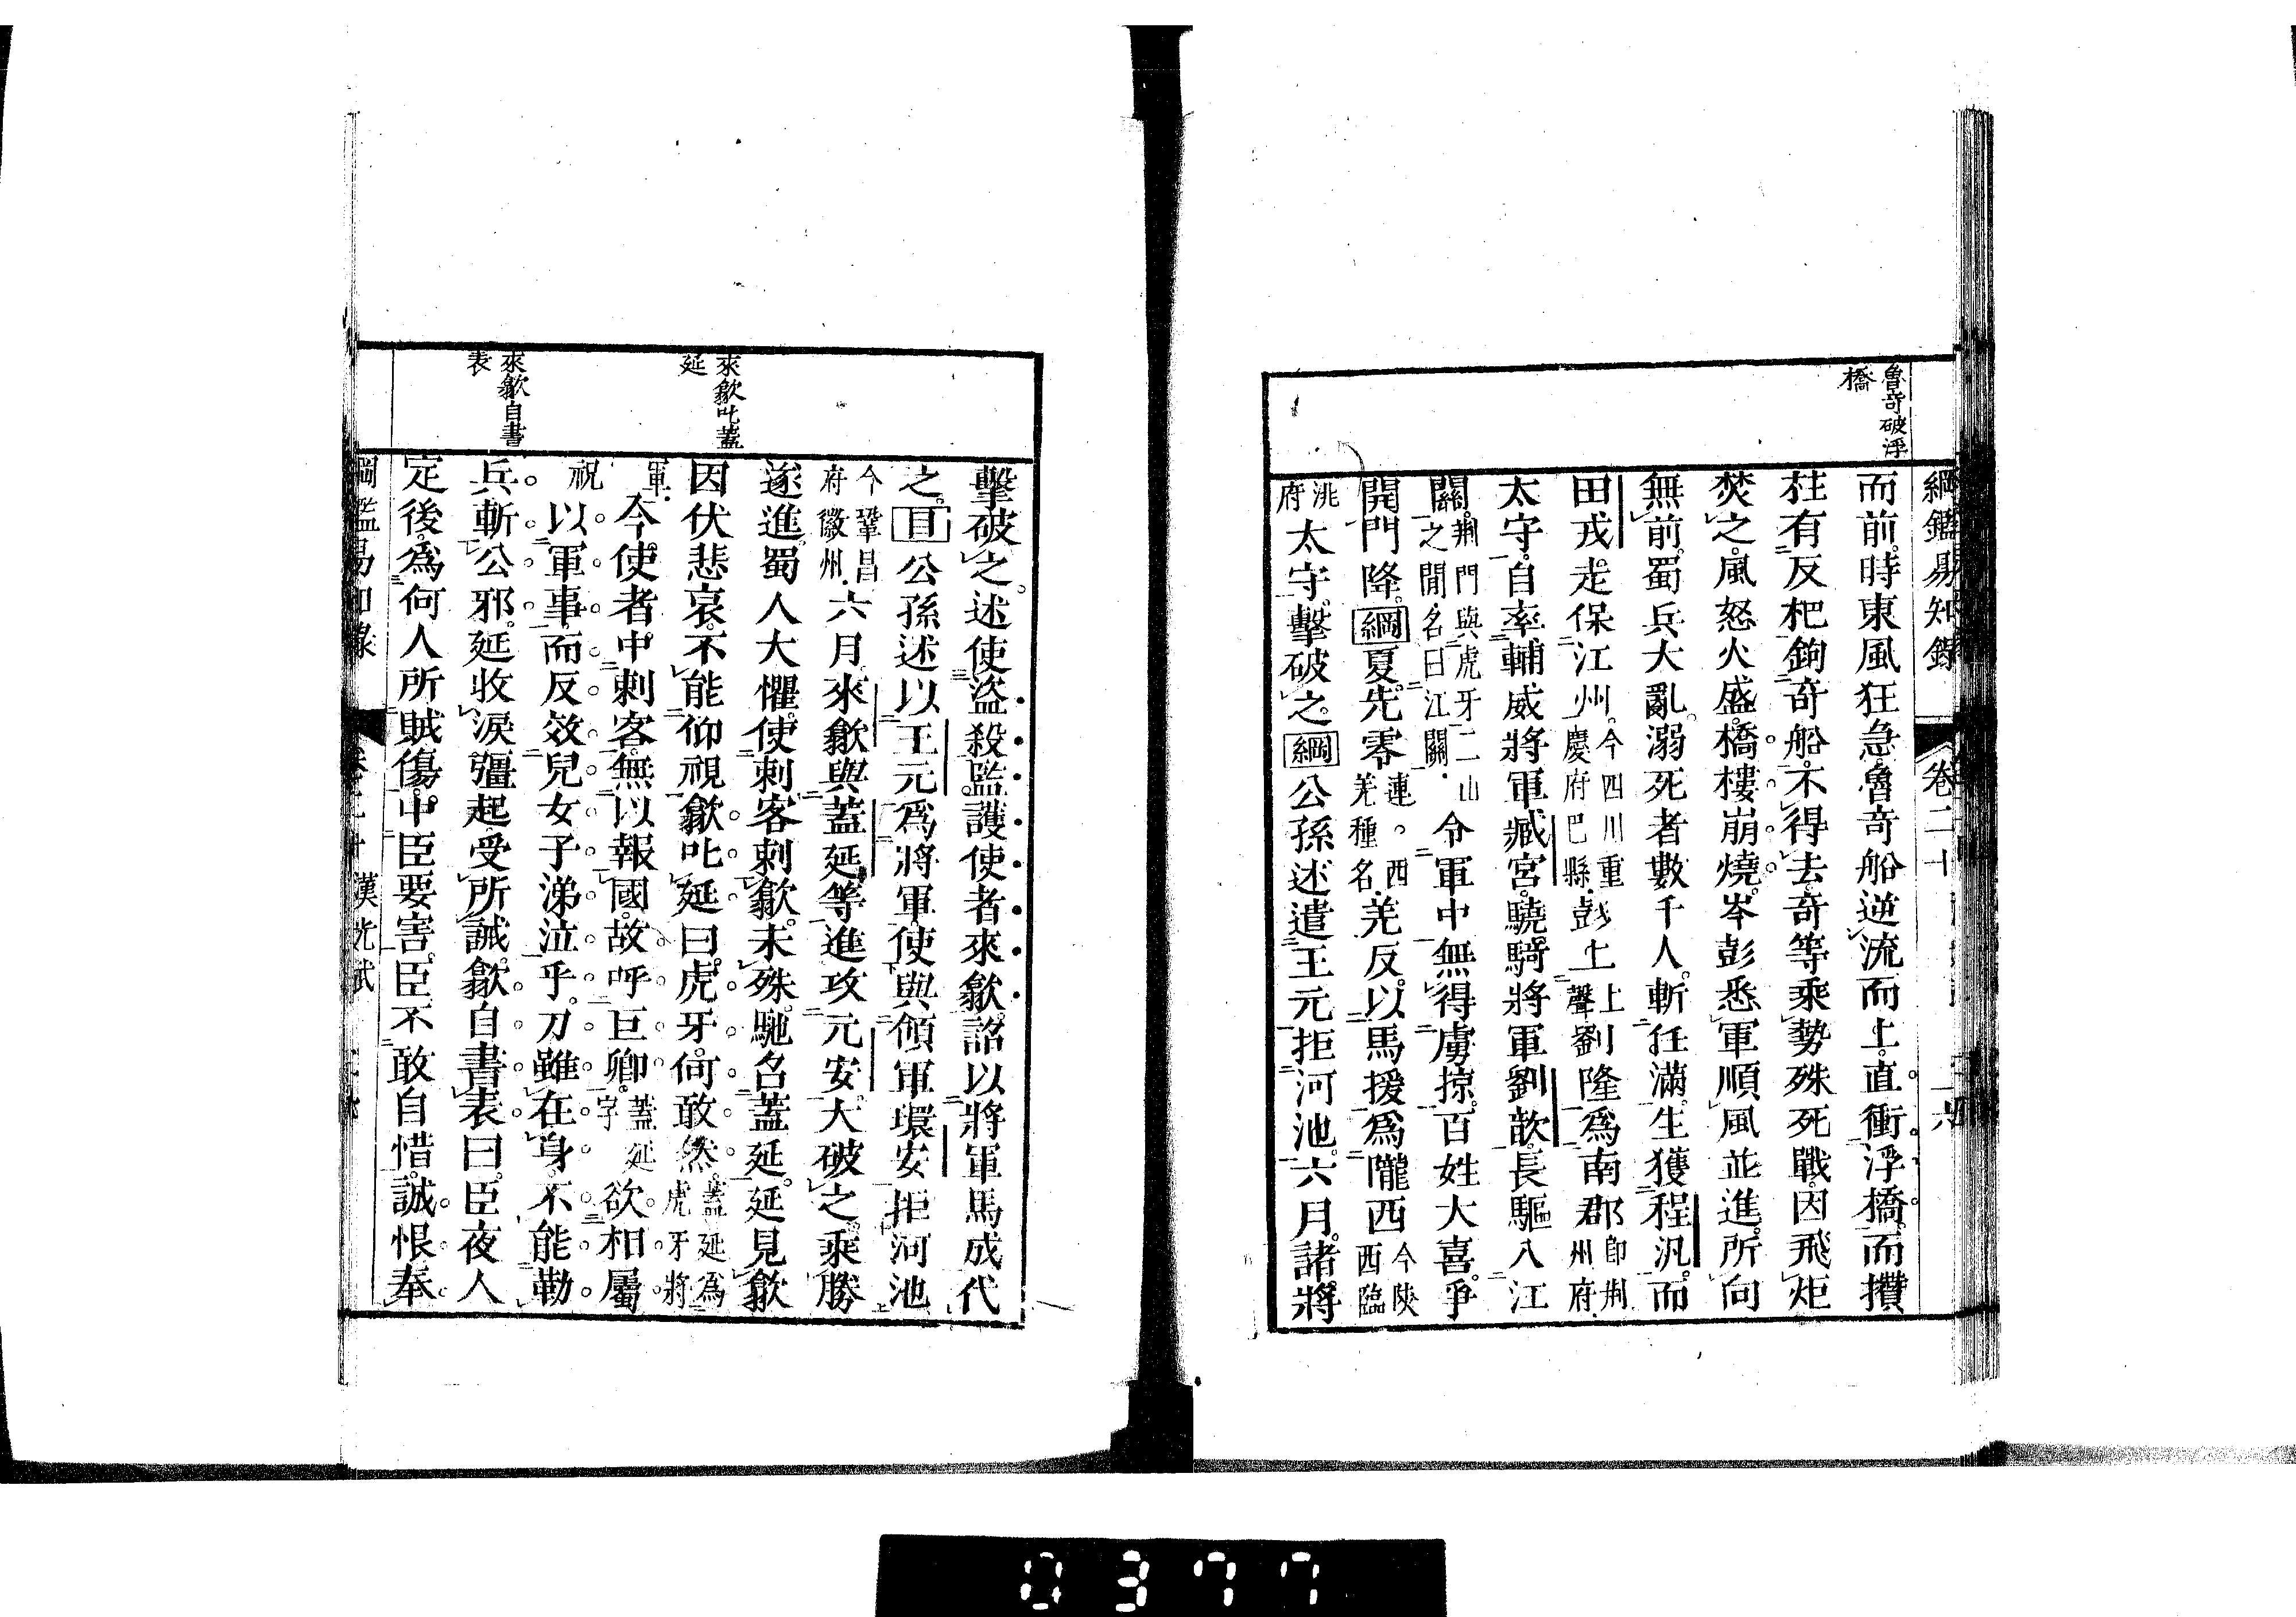 魯奇破浮
橋
綱鑑易知錄 卷二十
而前時東風狂急魯奇船逆流而上直衝浮橋而攢
柱有反杷鉤奇船不得去奇等乘勢殊死戰因飛炬
焚之風怒火盛橋樓崩燒岑彭悉軍順風並進所向
無前蜀兵大亂溺死者數千人斬任滿生獲程汎而
田戎走保江州今四川重慶府巴縣彭上上聲劉隆為南郡即荆州府
太守自率輔威將軍臧宮驍騎將軍劉歆長驅入江
關荆門與虎牙二山之閒名曰江關令軍中無得虜掠百姓大喜爭
開門降綱夏先零連西羌種名羌反以馬援為隴西今陝西臨
洮府太守擊破之綱公孫述遣王元拒河池六月諸將
來歙叱蓋
延
來歙自書
表
擊破之述使盜殺監護使者來歙詔以將軍馬成代
之目公孫述以王元為將軍使與領軍環安拒河池
今鞏昌府徽州六月來歙與蓋延等進攻元安大破之乘勝
遂進蜀人大懼使刺客刺歙未殊馳召蓋延延見歙
因伏悲哀不能仰視歙叱延曰虎牙何敢然蓋延為虎牙將
軍今使者中刺客無以報國故呼巨卿蓋延字欲相屬
祝以軍事而反效兒女子涕泣乎刀雖在身不能勒
兵斬公邪延收淚彊起受所誡歙自書表曰臣夜人
定後為何人所賊傷中臣要害臣不敢自惜誠恨奉
綱鑑易知錄 卷二十 漢光武
0377